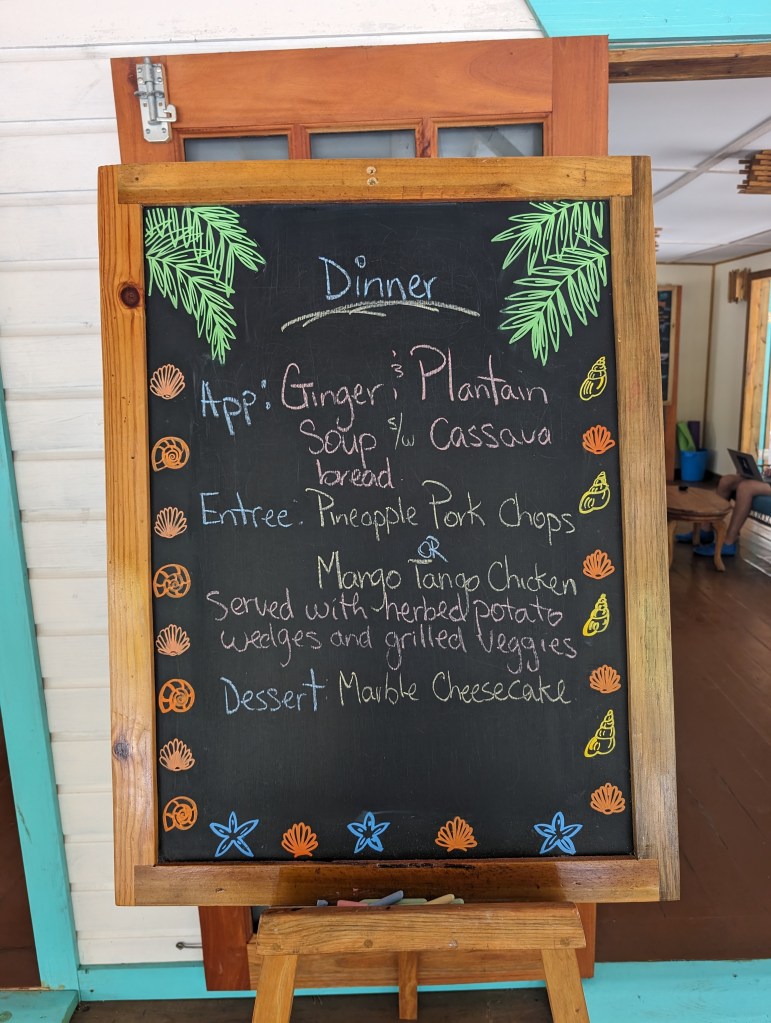 Dinner
App: Ginger & Plantain
Soup s/w Cassava
bread
Entree: Pineapple Pork Chops
OR
Mango Tango Chicken
Served with herbed potato
wedges and grilled Veggies
Dessert: Marble Cheesecake